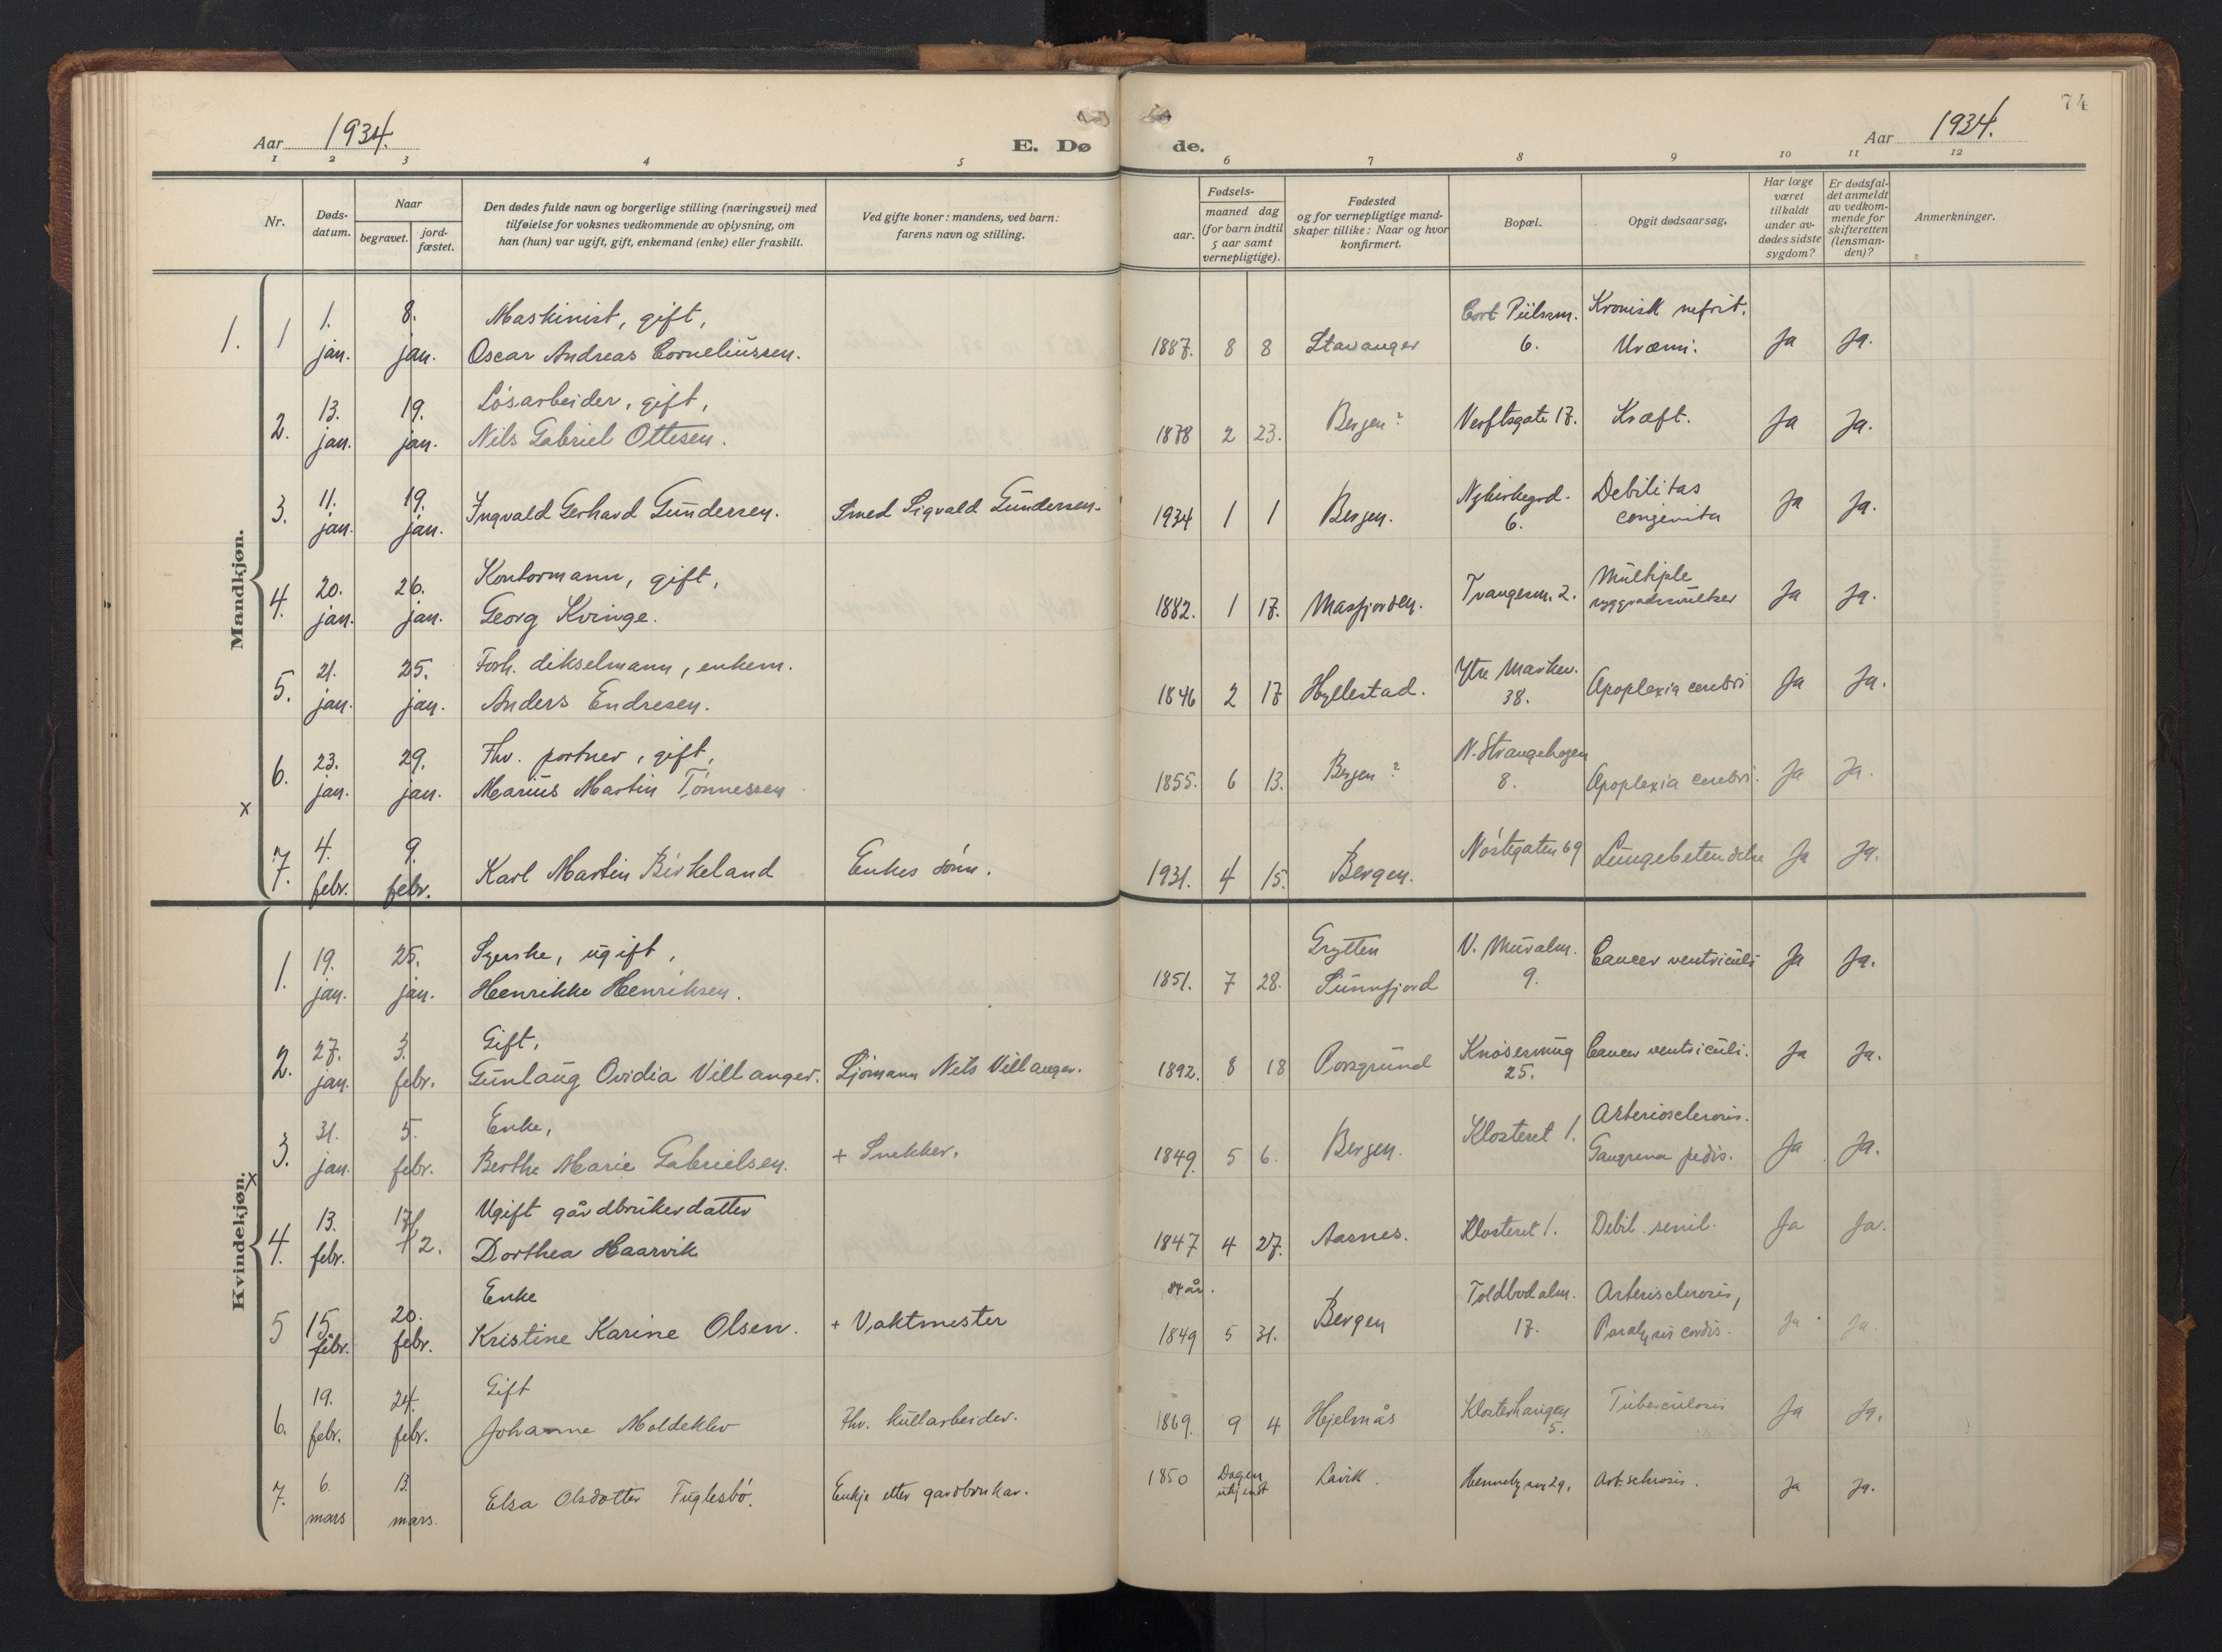 74
Aar 1934.
E. Dø
de.
Aar 1934.
1 2 3 4 5 6 7 8 9 10 11 12
Nr.
Døds-
datum.
Naar
begravet.
jord-
fæstet.
Den dødes fulde navn og borgerlige stilling (næringsvei) med
tilføielse for voksnes vedkommende av oplysning, om
han (hun) var ugift, gift, enkemand (enke) eller fraskilt.
Ved gifte koner: mandens, ved barn:
farens navn og stilling.
Fødsels-
aar.
maaned dag
(for barn indtil
5 aar samt
vernepligtige).
Fødested
og for vernepligtige mand-
skaper tillike: Naar og hvor
konfirmert.
Bopæl.
Opgit dødsaarsag.
Har læge
været
tilkaldt
under av-
dødes sidste
sygdom?
Er dødsfal-
det anmeldt
av vedkom-
mende for
skifteretten
(lensman-
den)?
Anmerkninger.
Mandkjøn.
1. 1 1. 8. Maskinist, gift, Cort Piilsm. Kronisk nefrit.
jan. jan. Oscar Andreas Corneliussen. 1887. 8 8 Stavanger 6. Uræmi. Ja Ja.
2. 13. 19. Løsarbeider, gift,
jan. jan. Nils Gabriel Ottesen. 1878 2 23. Bergen? Verftsgate 17. Kræft. Ja Ja.
3. 11. 19. Nykirkegrd. Debilitas
jan. jan. Ingvald Gerhard Gundersen. Smed Sigvald Gundersen. 1934 1 1 Bergen. 6. congenita Ja Ja.
4. 20. 26. Kontormann, gift, Multiple
jan. jan. Georg Kvinge. 1882. 1 17. Masfjorden. Tvangesm. 2. ryggradssvulster Ja Ja.
5. 21. 25. Forh. dikselmann, enkem. Ytre Markev.
jan. jan. Anders Endresen. 1846 2 17 Hyllestad. 38. Apoplexia cerebri Ja Ja.
6. 23. 29. Fhv. portner, gift, N. Strangehagen
x jan. jan. Marius Martin Tønnessen 1855. 6 13. Bergen? 8. Apoplexia cerebri. Ja Ja.
7. 4. 9. Nøstegaten 69
febr. febr. Karl Martin Birkeland Enkes sønn. 1931. 4 15. Bergen. Lungebetendelse Ja Ja.
Kvindekjøn.
1. 19. 25. Syerske, ugift, Grytten V. Muralm.
jan. jan. Henrikke Henriksen. 1851. 7 28. Sunnfjord 9. Cancer ventriculi Ja Ja.
2. 27. 3. Gift, Knøsesmug
jan. febr. Gunlaug Ovidia Villanger. Sjømann Nils Villanger. 1892. 8 18 Porsgrund 25. Cancer ventriculi. Ja Ja.
3. 31. 5. Enke, Arteriosclerosis.
x jan. febr. Berthe Marie Gabrielsen. + Snekker. 1849. 5 6. Bergen. Klosteret 1. Gangrena pedis. Ja Ja.
4. 13. 17/ Ugift gårdbrukerdatter
febr. 2. Dorthea Haarvik 1847 4 27. Aasnes. Klosteret 1. Debil. senil. Ja Ja.
5 15. 20. Enke 84 år. Toldbodalm. Arterisclerosis,
febr. febr. Kristine Karine Olsen. + Vaktmester 1849 5 31. Bergen 17. Paralysis cordis. Ja Ja.
6. 19. 24. Gift
febr. febr. Johanne Moldeklev Fhv. kullarbeider. 1869. 9 4 Hjelmås Klosterhaugen 5. Tuberculosis Ja Ja.
7. 6. 13. Dagen
mars mars. Elsa Olsdotter Fuglesbø. Enkje etter gardbrukar. 1850 ukjendt Lavik. 29. Art. sclerosis. Ja Ja.